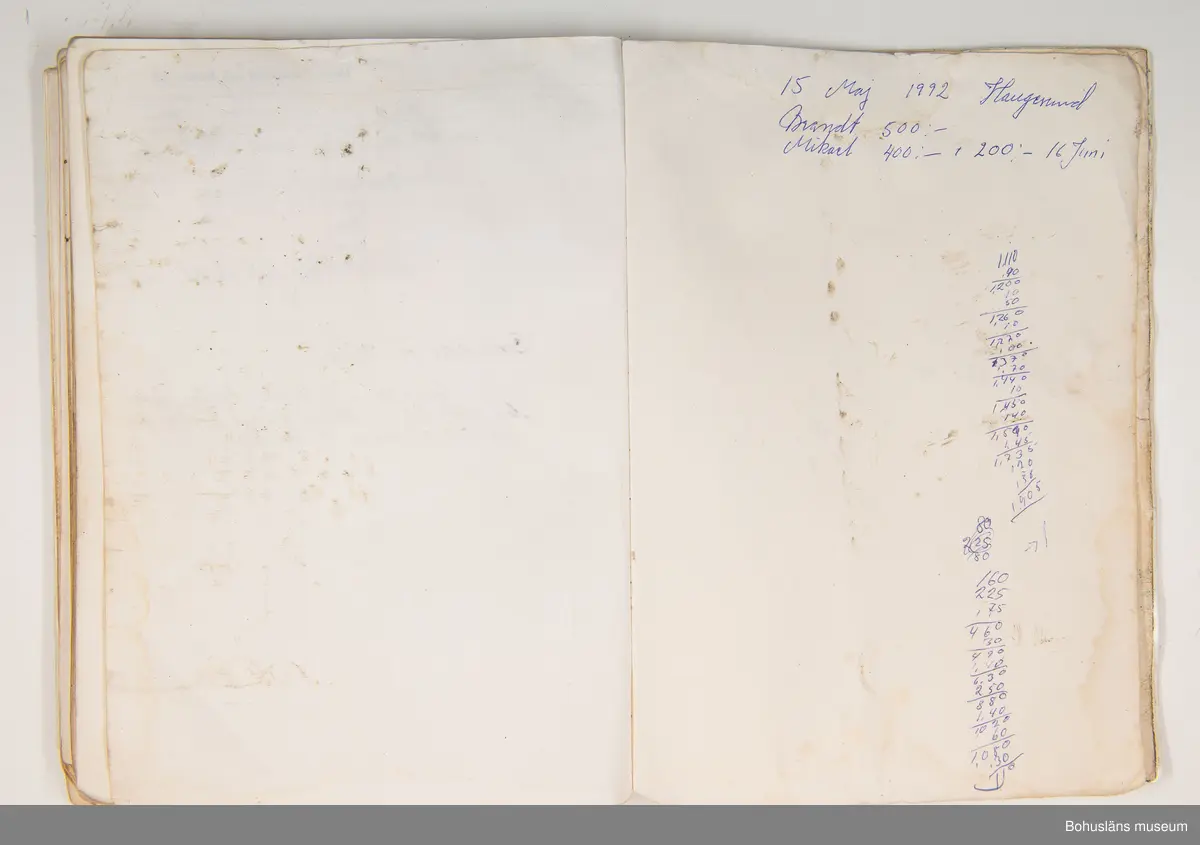 15 Maj 1992 Haugesund
Brandt 500:-
Mikael 400:- + 200:- 16 Juni
1110
90
1,200
10
50
1,260
10
1,270
100
1370
70
1,440
10
1,450
140
1,590
145
1,735
120
1,905
80
225
180
160
225
75
460
30
490
140
630
250
880
140
1020
60
1,080
30
Bohusläns museum